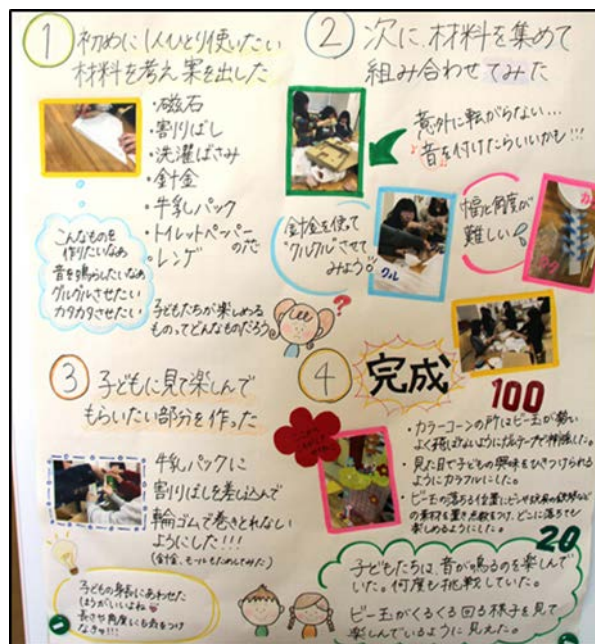 ① 初めに1人ひとり使いたい
材料を考え案を出した
・磁石
・割りばし
・洗濯ばさみ
・針金
・牛乳パック
・トイレットペーパー
の芯
・レンゲ
こんなものを
作りたいなぁ
音を鳴らしたいなぁ
グルグルさせたい
カタカタさせたい
子どもたちが楽しめる
ものってどんなものだろう
?
② 次に、材料を集めて
組み合わせてみた
意外に転がらない…
音を付けたらいいかも!!!
針金を使って
"クルクル"させて
みよう
クル
幅と角度が
難しい
カタ
③ 子どもに見て楽しんで
もらいたい部分を作った
牛乳パックに
割りばしを差し込んで
輪ゴムで巻きとれない
ようにした!!!
(針金、モールもためしてみた)
子どもの身長にあわせた
ほうがいいよね
長さや角度にも気をつけ
なきゃ!!!
④ 完成
100
・カラーコーンの所はビー玉が勢い
よく飛ばないようにガムテープで補強した。
・見た目で子どもの興味をひきつけられる
ようにカラフルにした。
・ビー玉の落ちる位置にビンや
の素材を置き点数をつけ、どこに落ちても
楽しめるようにした。
20
子どもたちは、音が鳴るのを楽しんで
いた。何度も挑戦していた。
ビー玉がくるくる回る様子を見て
楽しんでいるように見えた。